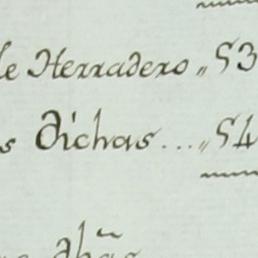 le Herradero „ 53
s dichas... „ 54
dhãs